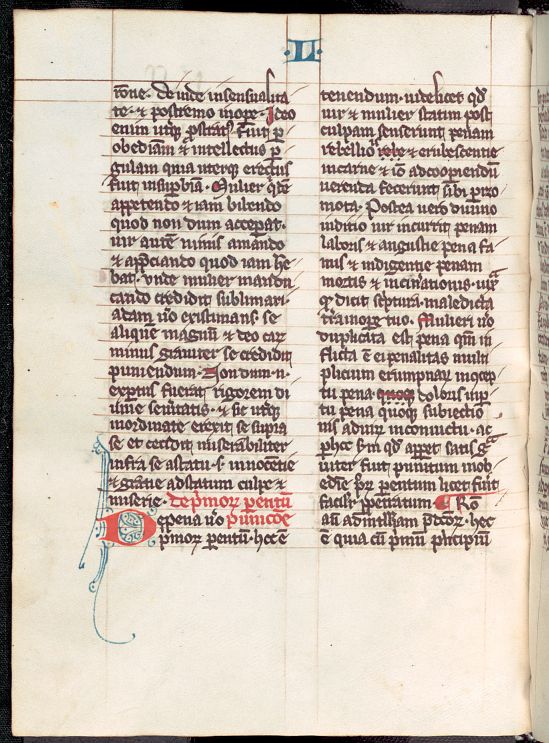 ·LI·
rone. deinde in sensualita
te. & postremo in opere. Ideo
enim uterque prostratus fuit per in
obedientiam & intellectus
gulam quia uterque erectus
fuit in superbiam. Mulier quidem
appetendo & iam bibendo
quod non dum acceperat.
uir autem nimis amando
& appreciando quod iam he
bat. unde mulier mandu
cando credidit sublimari.
adam uero existimans se
aliquem magnum & deo carum
minus grauiter se credidit
puniendum. Non dum enim
expertus fuerat rigorem di
uine seueritatis. & sic uterque
inordinate erexit se supra
se et cecidit miserabiliter
infra se a statu innocentie
& gratie ad statum culpe &
miserie. De primorum parentum
De pena uero punicione
primorum parentum. hec e
tenendum. uidelicet quod
uir & mulier statim post
culpam senserunt penam
rebellionis & erubescentie
in carne & ideo ad cooperiendum
uerenda fecerunt sibi perizo
mata. Postea uero diuino
iudicio uir incurrit penam
laboris & angustie pena fa
mis & indigentie penam
mortis & incinerationis. iuxta
quod dicit scriptura. maledicta
terra in opere tuo. Mulieri uero
duplicata est pena quoniam in
flicta e ei penalitas multi
plicium erumpnarum in concep
tu pena doloris in par
tu pena quoque subiectio
nis ad uirum in conuictu. ac
per hoc secundum quod apparet satis gra
uiter fuit punitum inob
edientie peccatum parentum licet fuit
facile perpetratum. Ratio
autem ad intelligentiam predictorum. hec
e quia cum primum principium